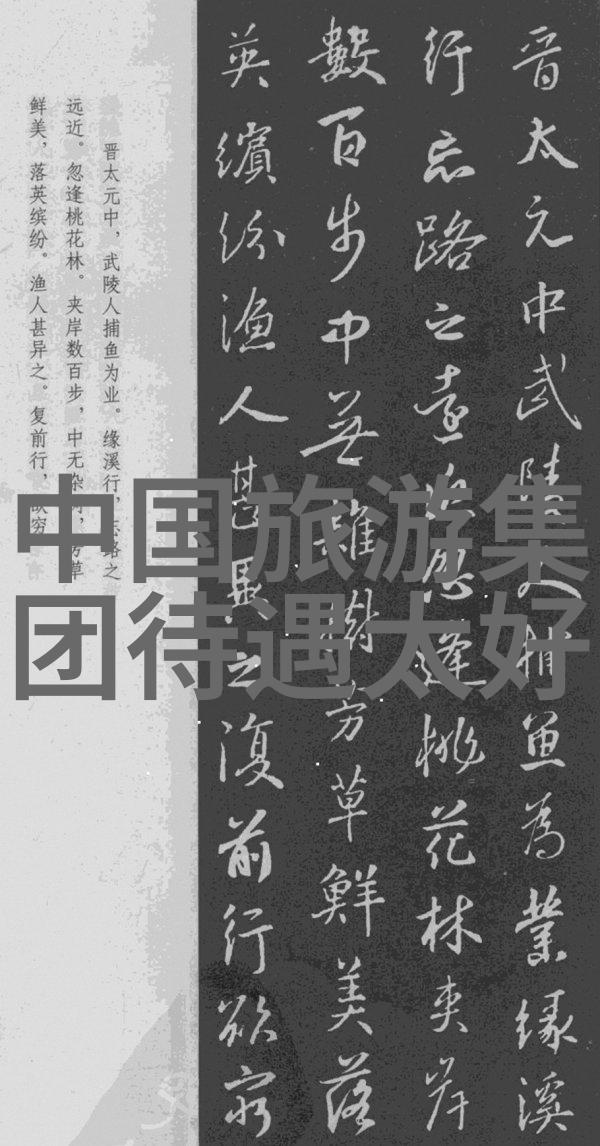 晋太元中武陵人捕魚為業緣溪
行忘路之遠近忽逢桃花林夾岸
數百步中無雜樹芳草鮮美落
英繽紛漁人甚異之復前行欲窮
晋太元中，武陵人捕鱼为业。缘溪行，忘路之
远近。忽逢桃花林。夹岸数百步，中无杂树，芳草
鲜美，落英缤纷。渔人甚异之。复前行，欲穷
中国旅游集
团待遇太好